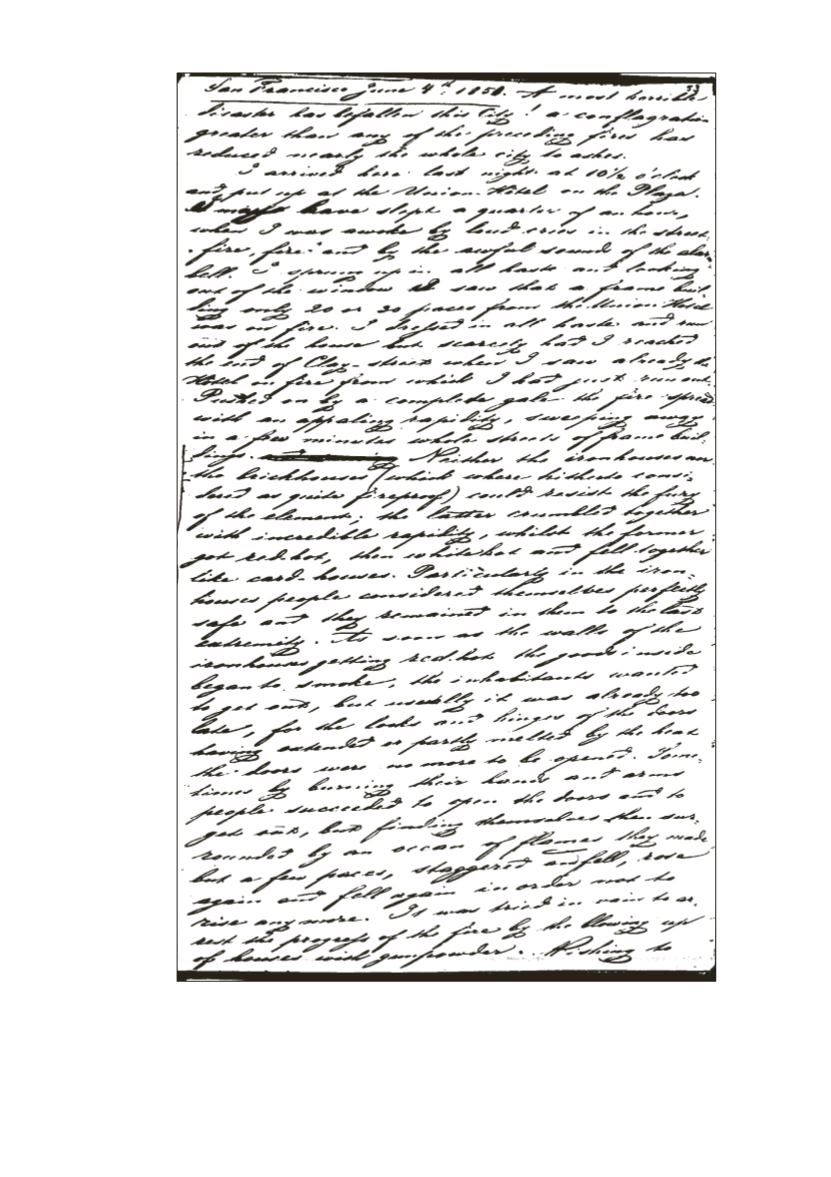 San Francisco June 4th 1851. A most horrible 33
disaster has befallen this City! a conflagration
greater than any of the preceding fires has
reduced nearly the whole city to ashes.
I arrived here last night at 10½ o'clock
and put up at the Union-Hôtel on the Plaza.
I might have slept a quarter of an hour,
when I was awoke by loud cries in the street:
"fire, fire" and by the awful sound of the alar
bell. I sprung up in all haste and looking
out of the window I saw that a frame buil-
ding only 20 or 30 paces from the Union Hôtel
was on fire. I dressed in all haste and run
out of the house but scarcely had I reached
the end of Clay-street when I saw already the
Hôtel on fire from which I had just run out.
Pushed on by a complete gale the fire spread
with an appaling rapidity, sweeping away
in a few minutes whole streets of frame buil-
dings. Neither the ironhouses nor
the brickhouses (which where hitherto consi-
dered as quite fireproof) could resist the fury
of the element; the latter crumbled together
with incredible rapidity, whilst the former
got red-hot, then white-hot and fell together
like card-houses. Particularly in the iron-
houses people considered themselves perfectly
safe and they remained in them to the last
extremity. As soon as the walls of the
ironhouses getting red-hot the goods inside
began to smoke, the inhabitants wanted
to get out, but usually it was already too
late, for the locks and hinges of the doors
having extended or partly melted by the heat
the doors were no more to be opened. Some-
times by burning their hands and arms
people succeeded to open the doors and to
get out, but finding themselves then sur-
rounded by an ocean of flames they made
but a few paces, staggered and fell, rose
again and fell again in order not to
rise any more. It was tried in vain to ar-
rest the progress of the fire by the blowing up
of houses with gunpowder. Wishing to